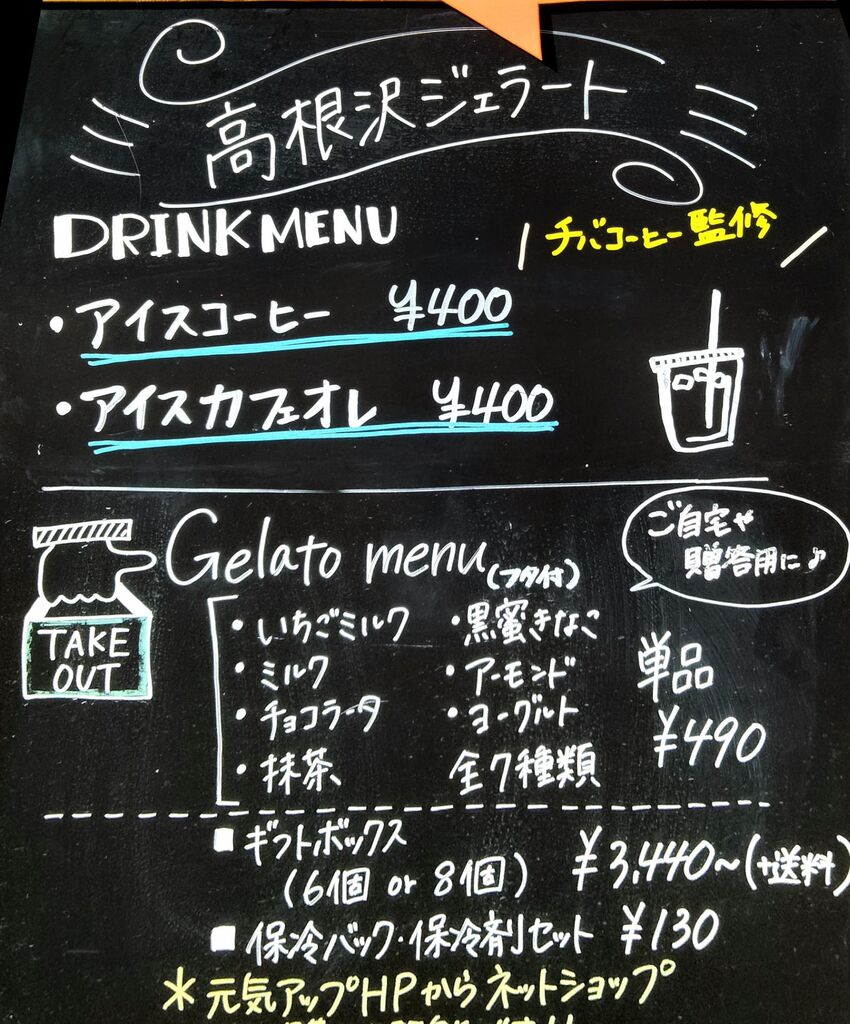 高根沢ジェラート
DRINK MENU
チバコーヒー監修
・アイスコーヒー ¥400
・アイスカフェオレ ¥400
Gelato menu(フタ付)
ご自宅や
贈答用に♪
TAKE
OUT
・いちごミルク ・黒蜜きなこ
・ミルク ・アーモンド
・チョコラータ ・ヨーグルト
・抹茶 全7種類
単品
¥490
■ギフトボックス
(6個 or 8個) ¥3,440~(+送料)
■保冷バック・保冷剤セット ¥130
*元気アップHPからネットショップ